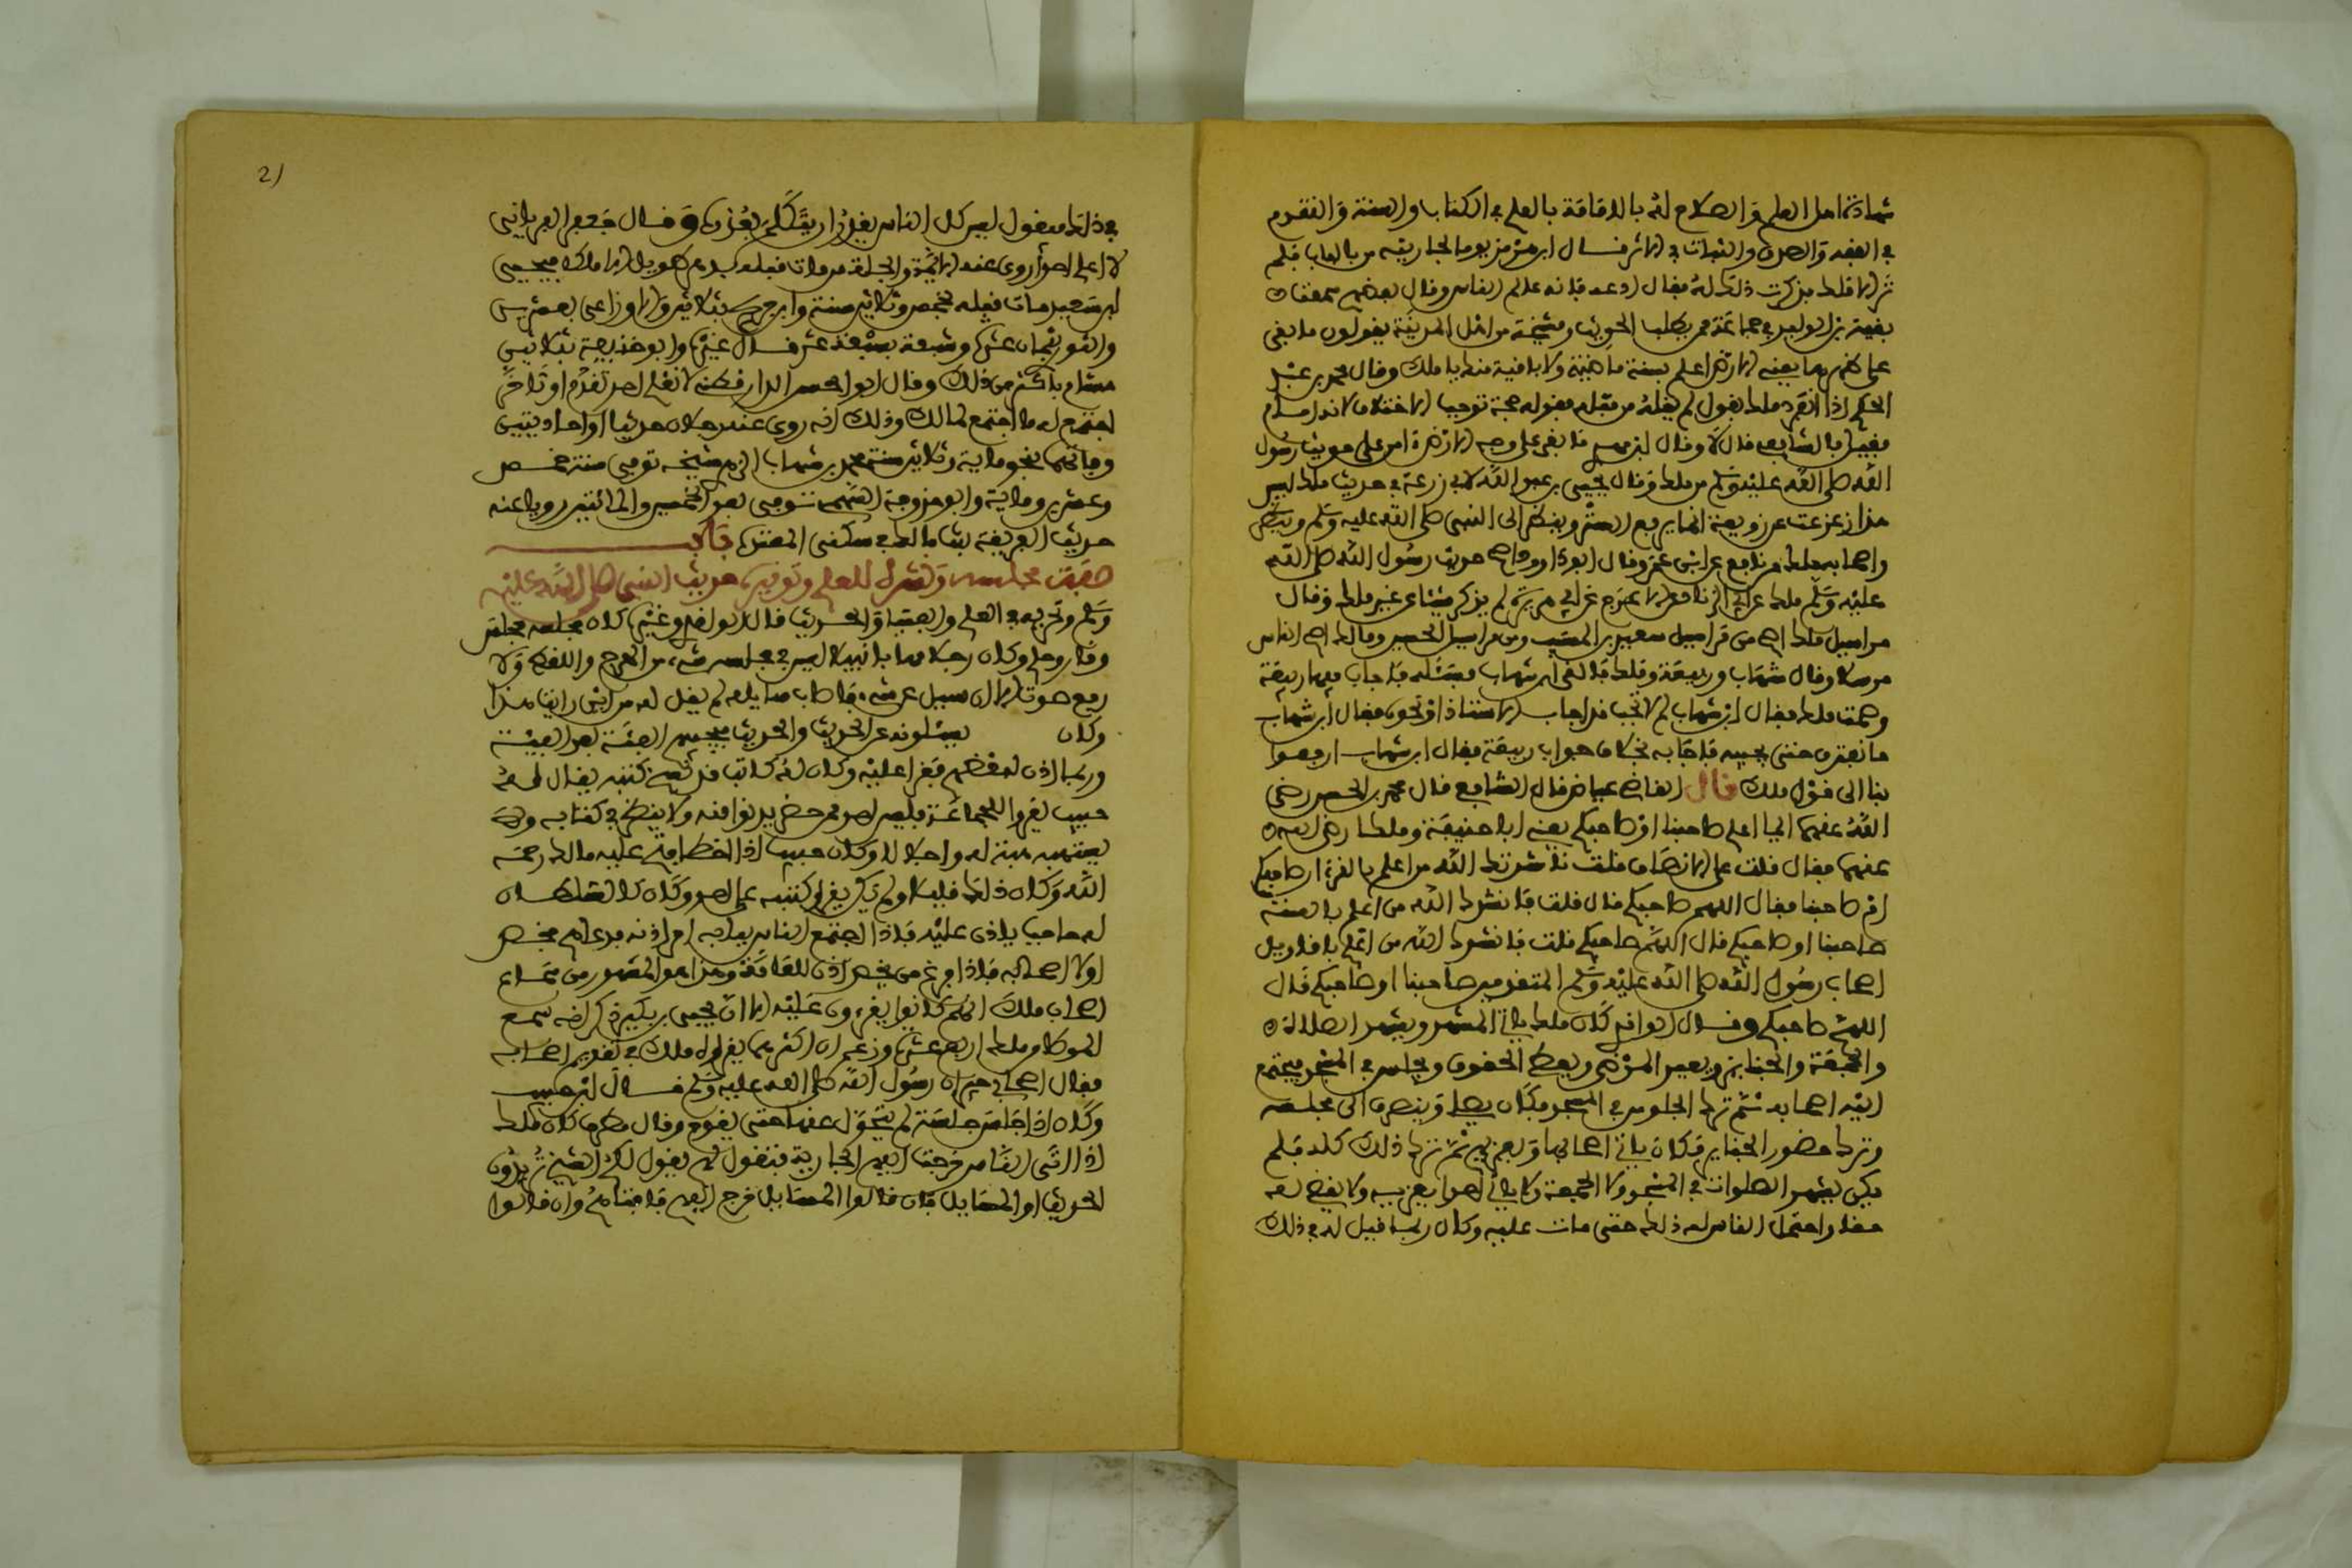 شهادة اهل العلم والصلاح له بالامامة بالعلم في الكتاب والسنة والتقدم
في الفقه والصدق والثبات في الاثر قال ابن هرمز يوما لجاريته من بالباب فلم
تر الا ملك فذكرت ذلك له فقال ادعه فانه عالم الناس وقال بعضهم سمعت
بقية بن الوليد في جماعة ممن يطلب الحديث ومشيخة من اهل المدينة يقولون ما بقي
على ظهرها يعني الارض اعلم بسنة ماضية ولا باقية منك يا ملك وقال محمد بن عبد
الحكم اذا انفرد ملك بقول لم يقله من قبله فقوله حجة توجب الاختلاف لانه امام
فقيل بالشافعي قال لا وقال ابن مهدي ما بقي على وجه الارض امن على حديث رسول
الله صلى الله عليه وسلم من ملك وقال يحيى بن عبد الله لابي زرعة في حديث ملك ليس
هذا زعزعة عن زوبعة انما يرفع الستر وينظر الى النبي صلى الله عليه وسلم وينظر
واصحابه ملك عن نافع عن ابن عمر وقال ابو داوود اصح حديث رسول الله صلى الله
عليه وسلم ملك عن ابي الزناد عن الاعرج عن ابي هريرة لم يذكر شيئا عن غير ملك وقال
مراسيل ملك اصح من مراسيل سعيد بن المسيب ومن مراسيل الحسن ومالك اصح الناس
مرسلا وقال شهاب وربيعة وملك فالقى ابن شهاب مسئلة فاجاب فيها ربيعة
وصمت ملك فقال ابن شهاب لم لا تجب قد اجاب الاستاذ او نحوه فقال ابن شهاب
ما نفترق حتى يجيب فاجابه بخلاف جواب ربيعة فقال ابن شهاب ارجعوا
بنا الى قول ملك قال القاضي عياض قال الشافعي قال محمد بن الحسن رضي
الله عنهما ايهما اعلم صاحبنا او صاحبكم يعني ابا حنيفة وملك رضي الله
عنهما فقال قلت على الانصاف قلت ناشدتك الله من اعلم بالقرءان صاحبكم
او صاحبنا فقال اللهم صاحبكم قال قلت فانشدك الله من اعلم بالسنة
صاحبنا او صاحبكم قال اللهم صاحبكم قلت فانشدك الله من اعلم باقاويل
اصحاب رسول الله صلى الله عليه وسلم المتقدمين صاحبنا او صاحبكم قال
اللهم صاحبكم وقال الواقدي كان ملك ياتي المسجد ويشهد الصلاة
والجمعة والجنائز ويعود المرضى ويعطي الحقوق ويجلس في المسجد فيجتمع
اليه اصحابه ثم ترك الجلوس في المسجد فكان يصلي وينصرف الى مجلسه
وترك حضور الجنايز فكان ياتي اصحابها ويعزيهم ثم ترك ذلك كله فلم
يكن يشهد الصلوات في المسجد ولا الجمعة ولا ياتي احدا يعزيه ولا يقضي له
حقا واحتمل الناس له ذلك حتى مات عليه وكان ربما قيل له في ذلك
21
في ذلك فيقول ليس كل الناس يقدر ان يتكلم بعذره وقال جعفر الفريابي
لا اعلم احدا روى عنه الائمة والجلة ممن مات قبله بدهر طويل الا ملك فيحيى
ابن سعيد مات قبله بخمس وثلاثين سنة وابن جريج بثلاثين والاوزاعي بعشرين
والثوري بثمان عشرة وشعبة بسبعة عشر قال غيره وابو حنيفة بثلاثين
هشام باكثر من ذلك وقال ابو الحسن الدارقطني لا نعلم احد تقدم او تاخر
اجتمع له ما اجتمع لمالك وذلك انه روى عنه رجلان حديثا واحدا وبين
وفاتهما نحو ماية وثلاثين سنة محمد بن شهاب الزهري شيخه توفي سنة خمس
وعشرين وماية وابو حذافة السهمي توفي بعد الخمسين والمائتين رويا عنه
حديث الفريعة بنت مالك في سكنى المعتدة باب
صفة مجلسه ونشره للعلم وتوقيره حديث النبي صلى الله عليه
وسلم وتحريه في العلم والفتيا والحديث قال الواقدي وغيره كان مجلسه مجلس
وقار وحلم وكان رجلا مهابا نبيلا ليس في مجلسه شيء من المراء واللغط ولا
رفع صوت اذا سئل عن شيء فاجاب سايله لم يقل له من اين رايت هذا
وكان يسئلونه عن الحديث والحديثين فيجيبهم الفينة بعد الفينة
وربما اذن لبعضهم فقرا عليه وكان له كاتب قد نسخ كتبه يقال له
حبيب يقرؤ للجماعة فليس احد ممن حضر يدنو منه ولا ينظر في كتابه ولا
يستفهمه هيبة له واجلالا وكان حبيب اذا اخطا فتح عليه مالك رحمه
الله وكان ذلك قليلا ولم يكن يقرا كتبه على احد وكان كالسلطان
له حاجب ياذن عليه فاذا اجتمع الناس ببابه امر اذنه فدعاهم فحضر
اولا اصحابه فاذا فرغ من يحضر اذن للعامة وهذا هو المشهور من سماع
اصحاب ملك انهم كانوا يقرءون عليه الا ان يحيى بن بكير ذكر انه سمع
الموطا من ملك اربع عشرة وزعم ان اكثرها بقراءة ملك في تقديم اصحابه
فقال اصحابي جيران رسول الله صلى الله عليه وسلم قال ابن حبيب
وكان اذا جلس جلسة لم يتحول عنها حتى يقوم وقال مطرف كان ملك
اذا اتى الناس خرجت اليهم الجارية فتقول لهم يقول لكم الشيخ تريدون
الحديث او المسايل فان قالوا المسايل خرج اليهم فافتاهم وان قالوا